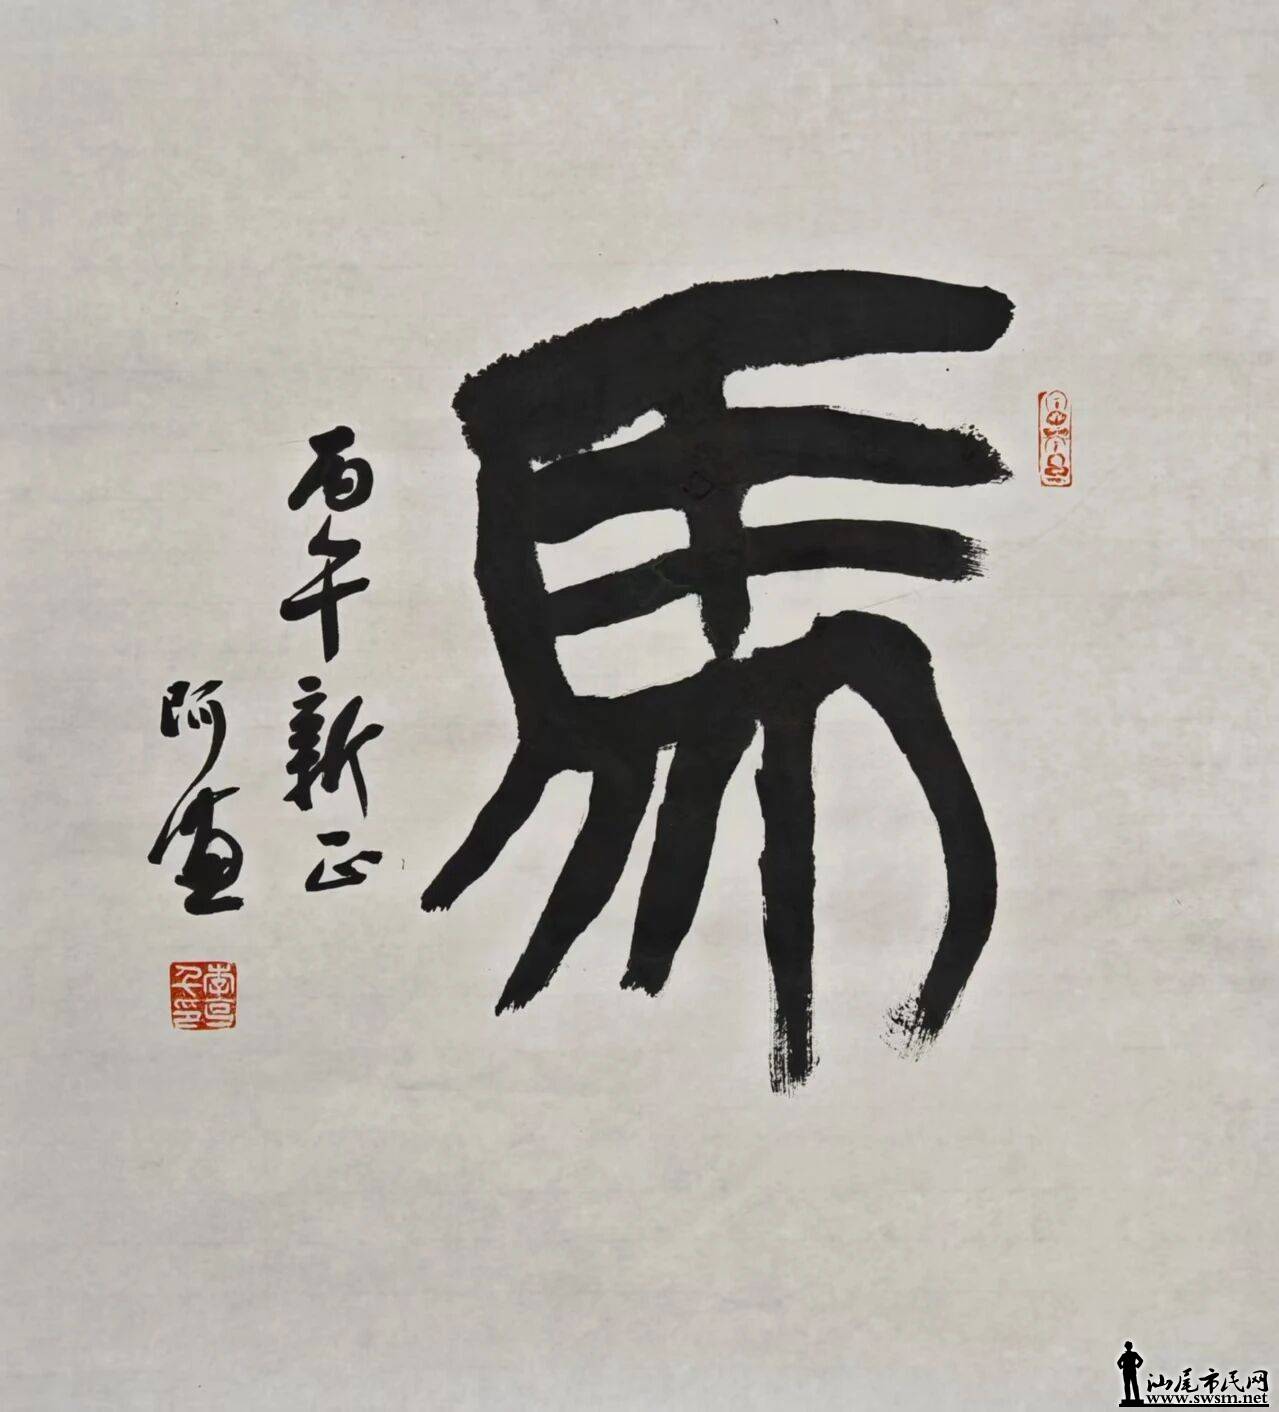 馬
丙午新正
阿
汕尾市民网
www.swsm.net